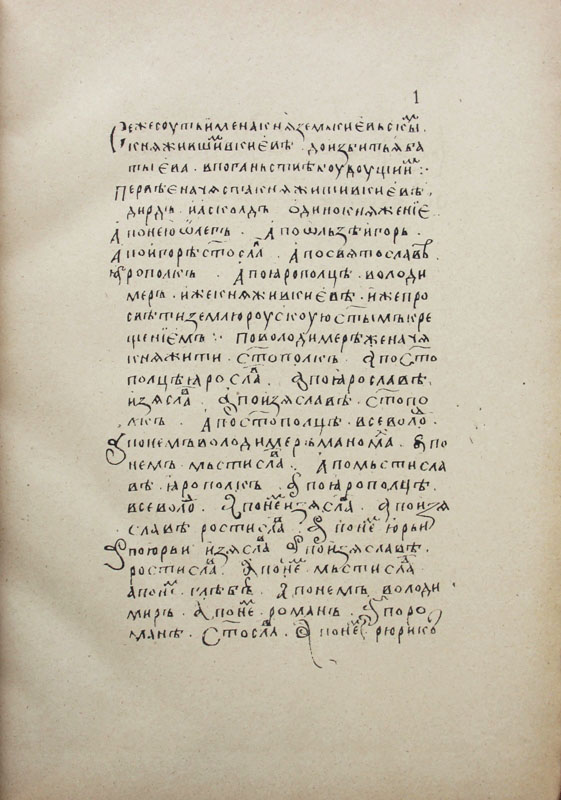 1
Сежесоутьименакнѧземькиєвьскы҇м.
кнѧжившимвкиєвѣ доизбитьѧба
тыєва. впоганьствѣкоудоущи
Первѣєначѧстакнѧжитивкиєвѣ.
дирдъ. иасколдъ одинокнѧжениѥ
А понеюѡлегъ. А поѡльзѣигорь.
А поигорѣст҃ославль. А посвѧтославѣ
ꙗрополкъ. А поꙗрополцѣ. володи
меръ. ижекнѧживкиєвѣ. ижепро
свѣтиземлюроускоуюст҃ымъкре
щениємъ: Поволодимерѣженачѧ
кнѧжити. ст҃ополкъ. А пост҃о
полцѣꙗрославъ. А поꙗрославѣ
изѧславъ. А поизѧславѣ. ст҃опо
лкъ. А пост҃ополцѣ. всеволодъ.
А понемъволодимерѣмономахъ. А по
немъ. мьстиславъ. А помьстисла
вѣ. ꙗрополкъ. А поꙗрополцѣ.
всеволодъ. А понемъизѧславъ. А поизѧ
славѣ ростиславъ. А понемъ юрьи
А поюрьи изѧславъ А поизѧславѣ.
ростиславъ. А понемъ мьстиславъ
А понемъ глѣбъ. А понемъ володи
миръ. А понемъ. романъ. А поро
манѣ. ст҃ославъ. А понемъ рюрикъ